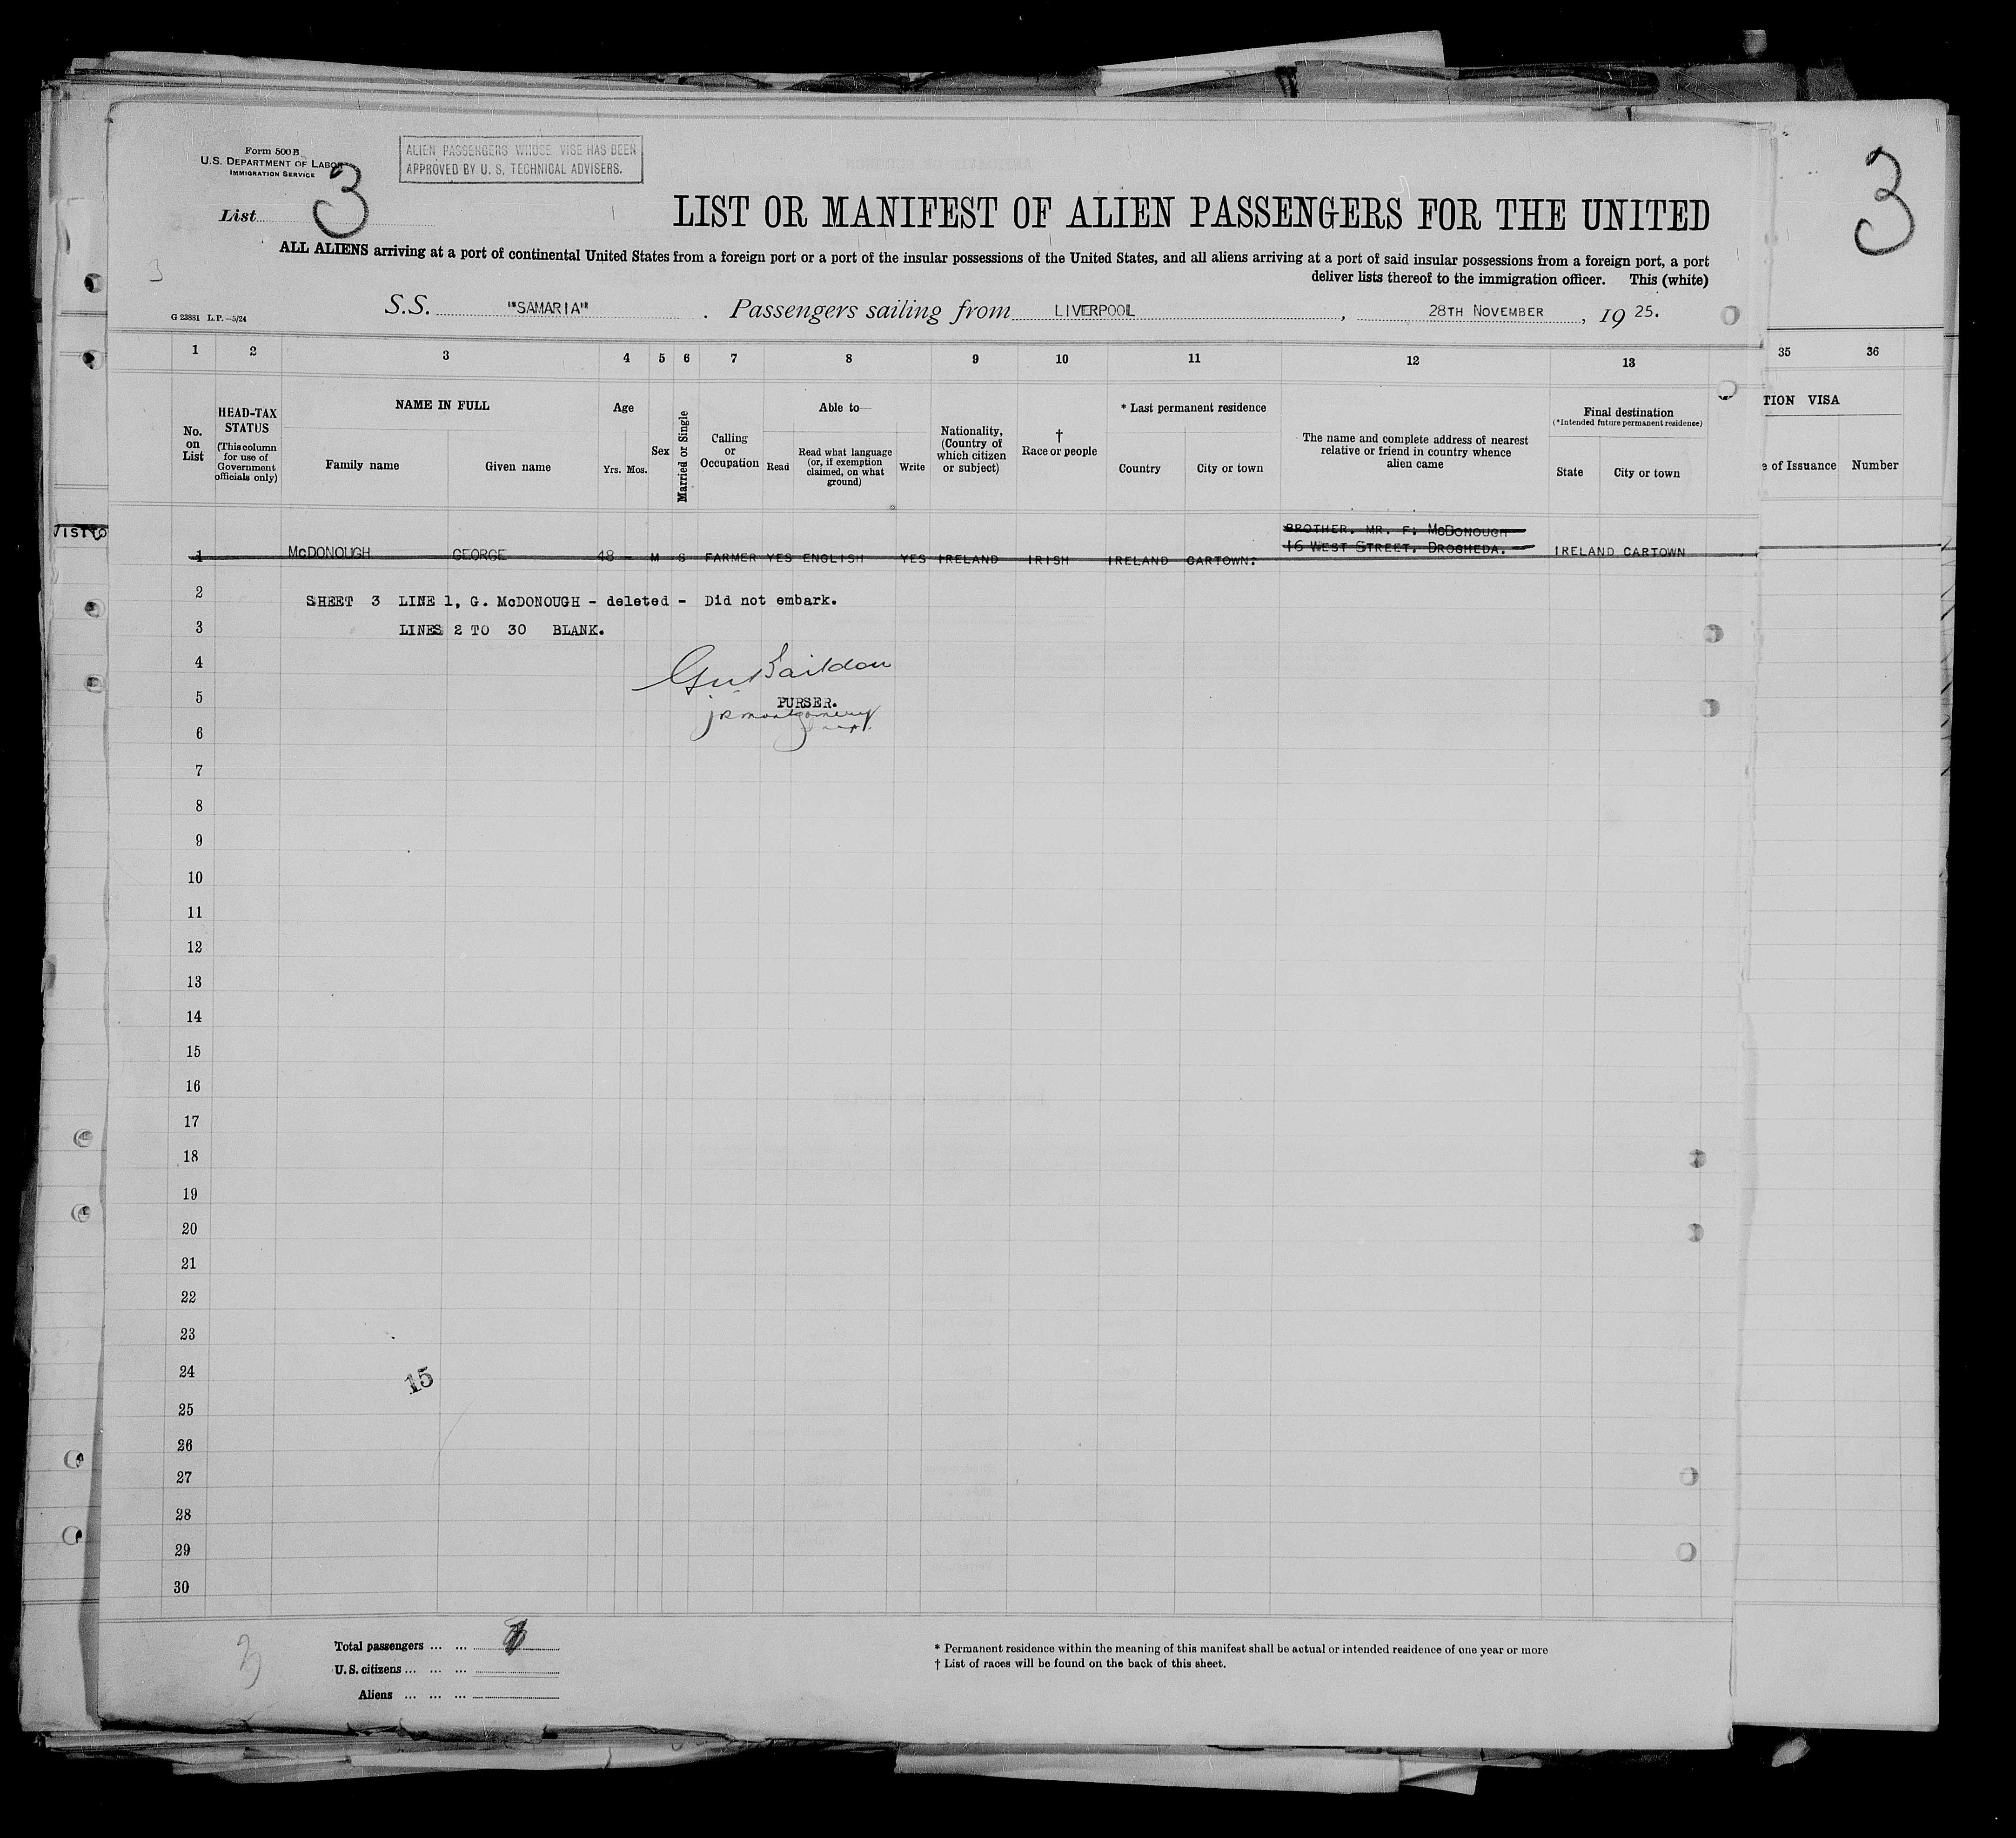 Form 500 B
U.S. DEPARTMENT OF LABOR
IMMIGRATION SERVICE
ALIEN PASSENGERS WHOSE VISE HAS BEEN
APPROVED BY U. S. TECHNICAL ADVISERS.
List 3
3
LIST OR MANIFEST OF ALIEN PASSENGERS FOR THE UNITED
ALL ALIENS arriving at a port of continental United States from a foreign port or a port of the insular possessions of the United States, and all aliens arriving at a port of said insular possessions from a foreign port, a port
deliver lists thereof to the immigration officer. This (white)
3
G 23881 L.P.—5/24
S.S. "SAMARIA" . Passengers sailing from LIVERPOOL , 28TH NOVEMBER , 19 25.
1 2 3 4 5 6 7 8 9 10 11 12 13 35 36
No. on List
HEAD-TAX STATUS
(This column for use of Government officials only)
NAME IN FULL
Family name Given name
Age
Yrs. Mos.
Sex
Married or Single
Calling or Occupation
Able to
Read
Read what language (or, if exemption claimed, on what ground)
Write
Nationality, (Country of which citizen or subject)
† Race or people
* Last permanent residence
Country City or town
The name and complete address of nearest relative or friend in country whence alien came
Final destination
(*Intended future permanent residence)
State City or town
TION VISA
e of Issuance Number
BROTHER. MR. F. McDONOUGH
1 McDONOUGH GEORGE 48 - M S FARMER YES ENGLISH YES IRELAND IRISH IRELAND CARTOWN. 16 WEST STREET. DROGHEDA. IRELAND CARTOWN
2 SHEET 3 LINE 1, G. McDONOUGH - deleted - Did not embark.
3 LINES 2 TO 30 BLANK.
4
5 PURSER.
6
7
8
9
10
11
12
13
14
15
16
17
18
19
20
21
22
23
24
15
25
26
27
28
29
30
3
Total passengers ... ...
U.S. citizens ... ... ...
Aliens ... ... ...
* Permanent residence within the meaning of this manifest shall be actual or intended residence of one year or more
† List of races will be found on the back of this sheet.